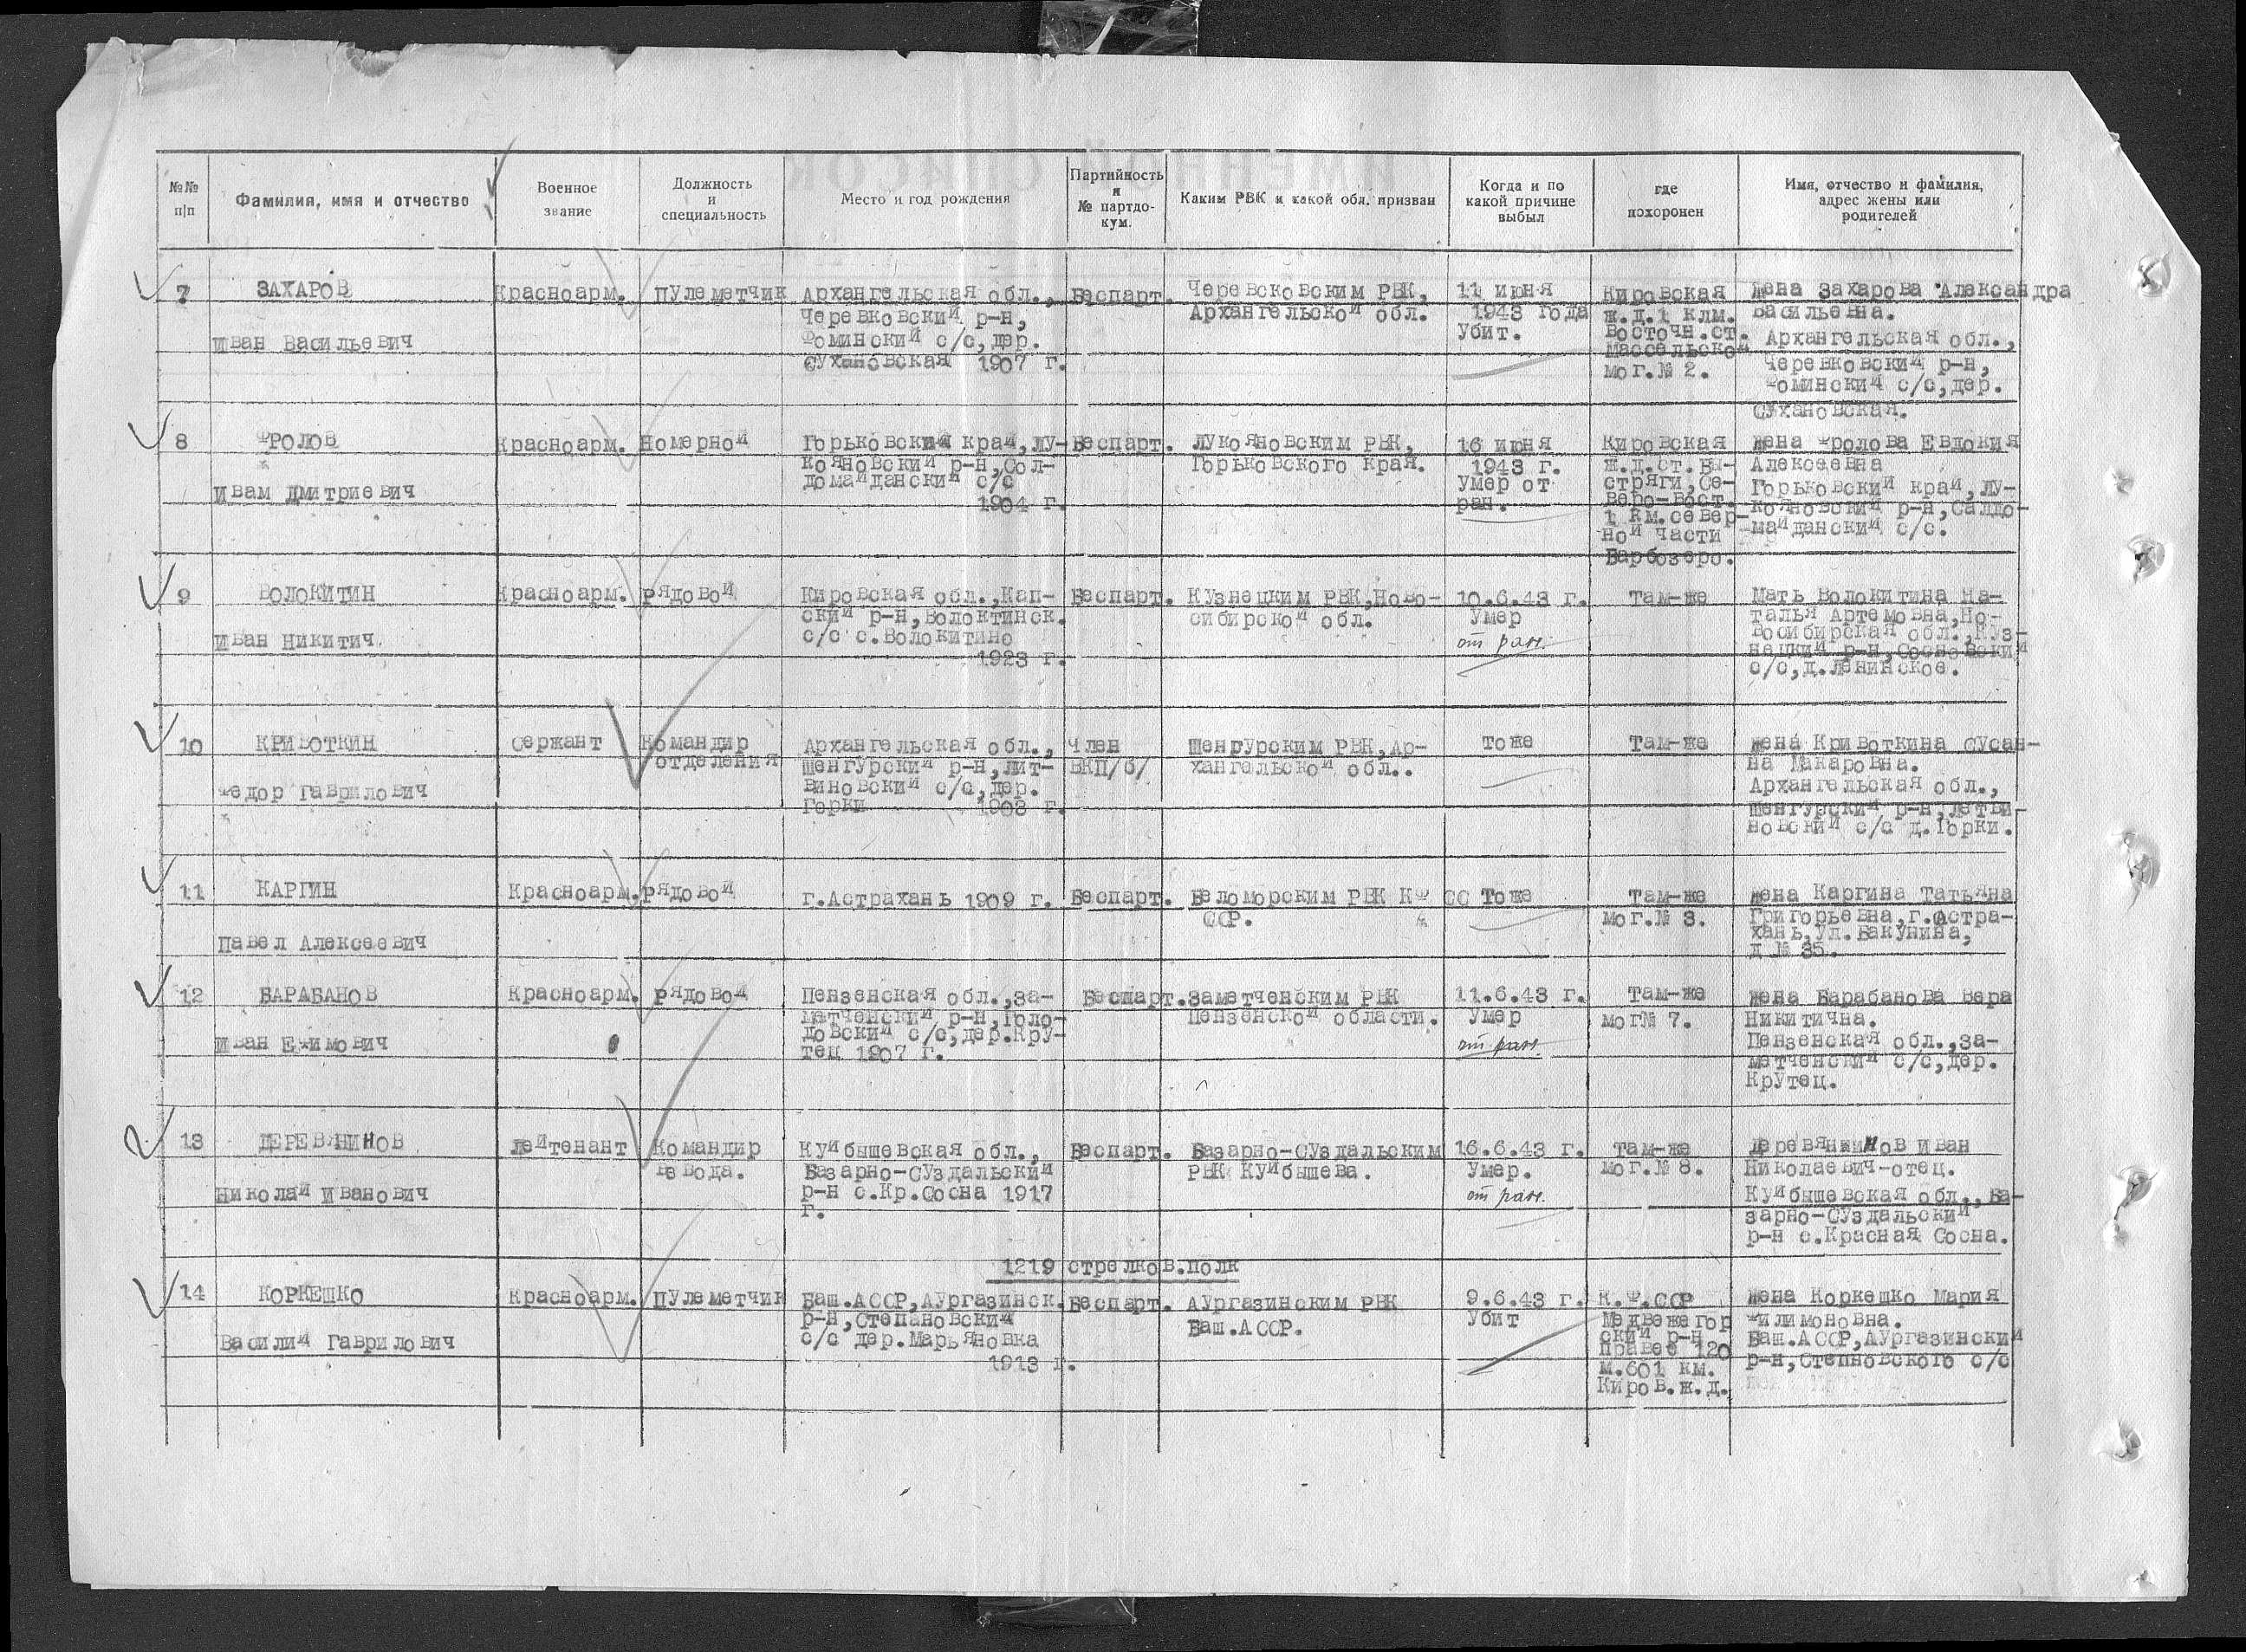 №№ п/п
Фамилия, имя и отчество
Военное звание
Должность и специальность
Место и год рождения
Партийность и № партдокум.
Каким РВК и какой обл. призван
Когда и по какой причине выбыл
где похоронен
Имя, отчество и фамилия, адрес жены или родителей
7
ЗАХАРОВ
Иван Васильевич
Красноарм.
Пулеметчик
Архангельская обл.,
Черевковский р-н,
Фоминский с/с, дер.
Сухановская 1907 г.
Беспарт.
Черевсковским РВК,
Архангельской обл.
11 июня
1943 года
Убит.
Кировская
ж.д. 1 клм.
Восточн. ст.
Массельской
мог. № 2.
Жена Захарова Александра
Васильевна.
Архангельская обл.,
Черевковский р-н,
Фоминский с/с, дер.
Сухановская.
8
ФРОЛОВ
Ивам Дмитриевич
Красноарм.
Номерной
Горьковский край, Лу-
кояновский р-н, Сол-
домайданский с/с
1904 г.
Беспарт.
Лукояновским РВК,
Горьковского края.
16 июня
1943 г.
Умер от
ран.
Кировская
ж.д. ст. Вы-
стряги, Се-
веро-вост.
1 км. север-
ной части
Варбозеро.
Жена Фролова Евдокия
Алексеевна
Горьковский край, Лу-
кояновский р-н, Салдо-
майданский с/с.
9
ВОЛОКИТИН
Иван Никитич
Красноарм.
Рядовой
Кировская обл., Кап-
ский р-н, Волоктинск.
с/с с. Волокитино
1923 г.
Беспарт.
Кузнецким РВК, Ново-
сибирской обл.
10.6.43 г.
Умер
от ран.
Там-же
Мать Волокитина На-
талья Артемовна, Но-
восибирская обл., Куз-
нецкий р-н, Сосновский
с/с, д. Ленинское.
10
КРИВОТКИН
Федор Гаврилович
Сержант
Командир
отделения
Архангельская обл.,
Шенгурский р-н, Лит-
виновский с/с, дер.
Горки 1903 г.
Член
ВКП/б/
Шенгурским РВК, Ар-
хангельской обл..
Тоже
Там-же
Жена Кривоткина Сусан-
на Макаровна.
Архангельская обл.,
Шенгурский р-н, Летви-
новский с/с д. Горки.
11
КАРГИН
Павел Алексеевич
Красноарм.
Рядовой
г. Астрахань 1909 г.
Беспарт.
Беломорским РВК КФ СС
ССР.
Тоже
Там-же
мог. № 3.
Жена Каргина Татьяна
Григорьевна, г. Астра-
хань, ул. Бакунина,
д № 35.
12
БАРАБАНОВ
Иван Ефимович
Красноарм.
Рядовой
Пензенская обл., За-
матченский р-н, Голо-
довский с/с, дер. Кру-
тец 1907 г.
Беспарт.
Заметченским РВК
Пензенской области.
11.6.43 г.
Умер
от ран.
Там-же
мог № 7.
Жена Барабанова Вера
Никитична.
Пензенская обл., За-
метченский с/с, дер.
Крутец.
13
ДЕРЕВЯНИНОВ
Николай Иванович
Лейтенант
Командир
взвода.
Куйбышевская обл.,
Базарно-Суздальский
р-н с. Кр. Сосна 1917
г.
Беспарт.
Базарно-Суздальским
РВК Куйбышева.
16.6.43 г.
Умер.
от ран.
Там-же
мог. № 8.
Иван
Николаевич-отец.
Куйбышевская обл., Ба-
зарно-Суздальский
р-н с. Красная Сосна.
1219 стрелков. полк
14
КОРКЕШКО
Василий Гаврилович
Красноарм.
Пулеметчик
Баш. АССР, Аургазинск.
р-н, Степановский
с/с дер. Марьяновка
1913 г.
Беспарт.
Аургазинским РВК
Баш. АССР.
9.6.43 г.
Убит
К.Ф.ССР
Медвежегор
ский р-н
правее 120
м. 601 км.
Киров. ж.д.
Жена Коркешко Мария
Филимоновна.
Баш. АССР, Аургазинский
р-н, Степновского с/с